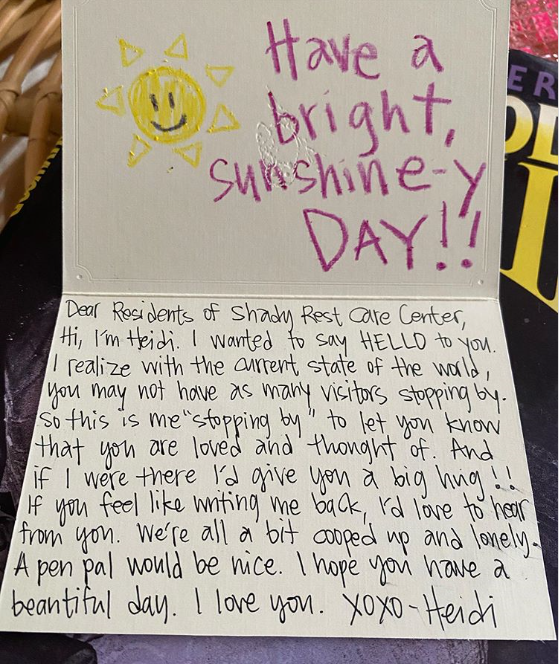 Have a
bright,
sunshine-y
DAY!!
Dear Residents of Shady Rest Care Center,
Hi, I'm Heidi. I wanted to say HELLO to you.
I realize with the current state of the world,
you may not have as many visitors stopping by.
So this is me "stopping by" to let you know
that you are loved and thought of. And
if I were there I'd give you a big hug!!
If you feel like writing me back, I'd love to hear
from you. We're all a bit cooped up and lonely.
A pen pal would be nice. I hope you have a
beautiful day. I love you. XOXO-Heidi